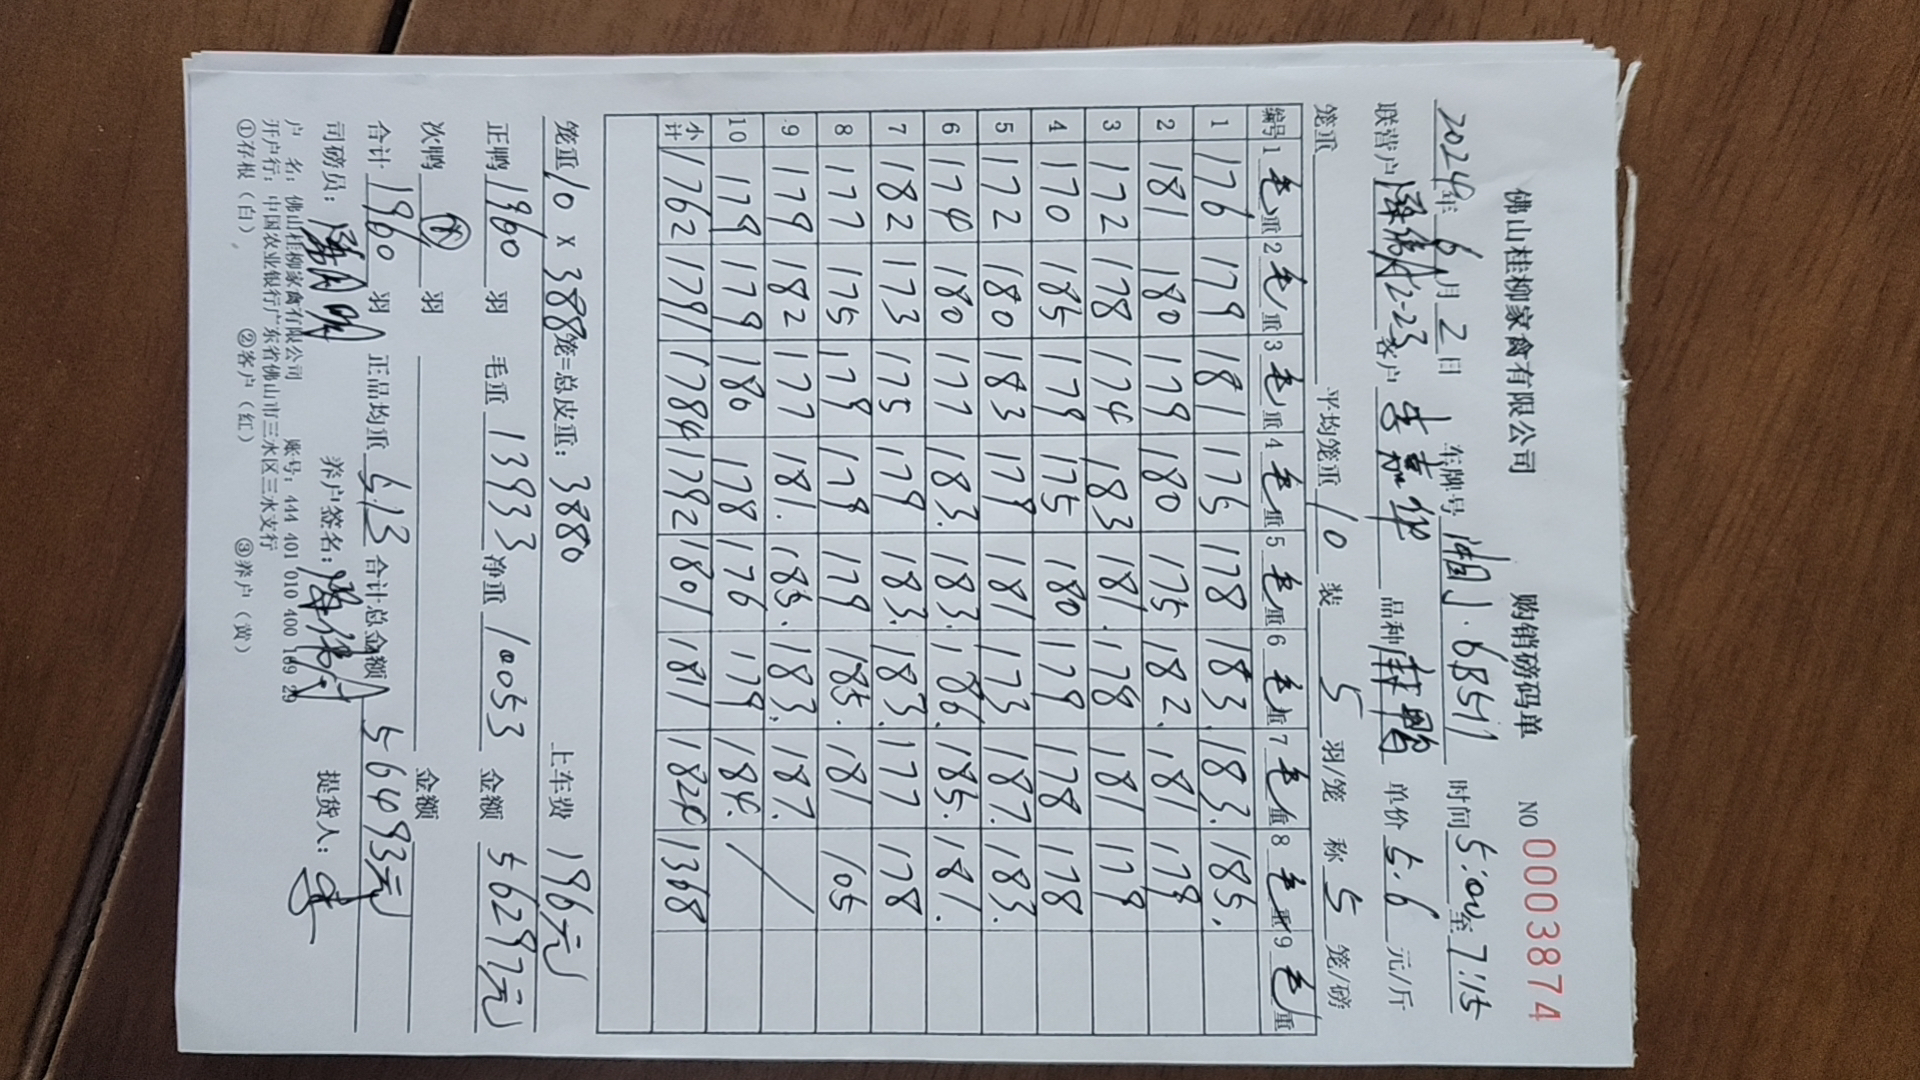 佛山桂柳家禽有限公司 购销磅码单 NO 0003874
2024年6月2日 车牌号 6B511 时间5:00至7:15
联营户 2-23 客户 李嘉华 品种 单价5.6元/斤
笼重 平均笼重10 装5羽/笼 称5笼/磅
编号 1毛重 2毛重 3毛重 4毛重 5毛重 6毛重 7毛重 8毛重 9毛重
1 176 179 181 175 178 183. 183. 185.
2 181 180 179 180 175 182. 181 179
3 172 178 174 183 181. 178 181 179
4 170 185 179 175 180 179 178 178
5 172 180 183 179 181 173 187. 183.
6 174 180 177 183. 183. 186. 185. 181.
7 182 173 175 179 183. 183. 177 178
8 177 175 179 179 179 185. 181 105
9 179 182 177 181. 185. 183. 187. /
10 179 179 180 178 176 179 184.
小计 1762 1791 1784 1792 1801 1811 1824 1368
笼重10 x 388笼=总皮重：3880 上车费 196元
正鸭1960羽 毛重13933 净重10053 金额 56297元
次鸭 羽 金额
合计1960羽 正品均重5.13 合计总金额 56493元
司磅员： 养户签名： 提货人：
户 名：佛山桂柳家禽有限公司 账号：444 401 010 400 169 29
开户行：中国农业银行广东省佛山市三水区三水支行
①存根（白） ②客户（红） ③养户（黄）